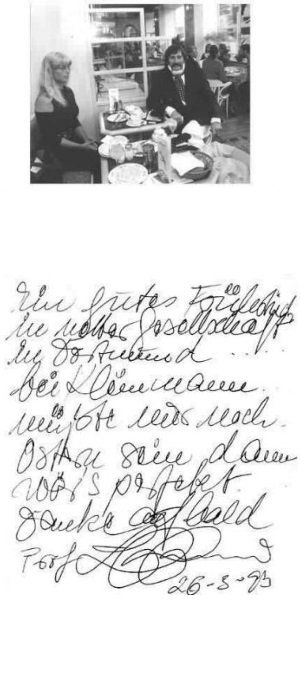 Ein gutes Frühstück
in netter Gesellschaft
in Dortmund .....
bei Kleimann
müßte nur noch
Ostern sein dann
wär's perfekt
Danke auf bald
Prof
26-3-93